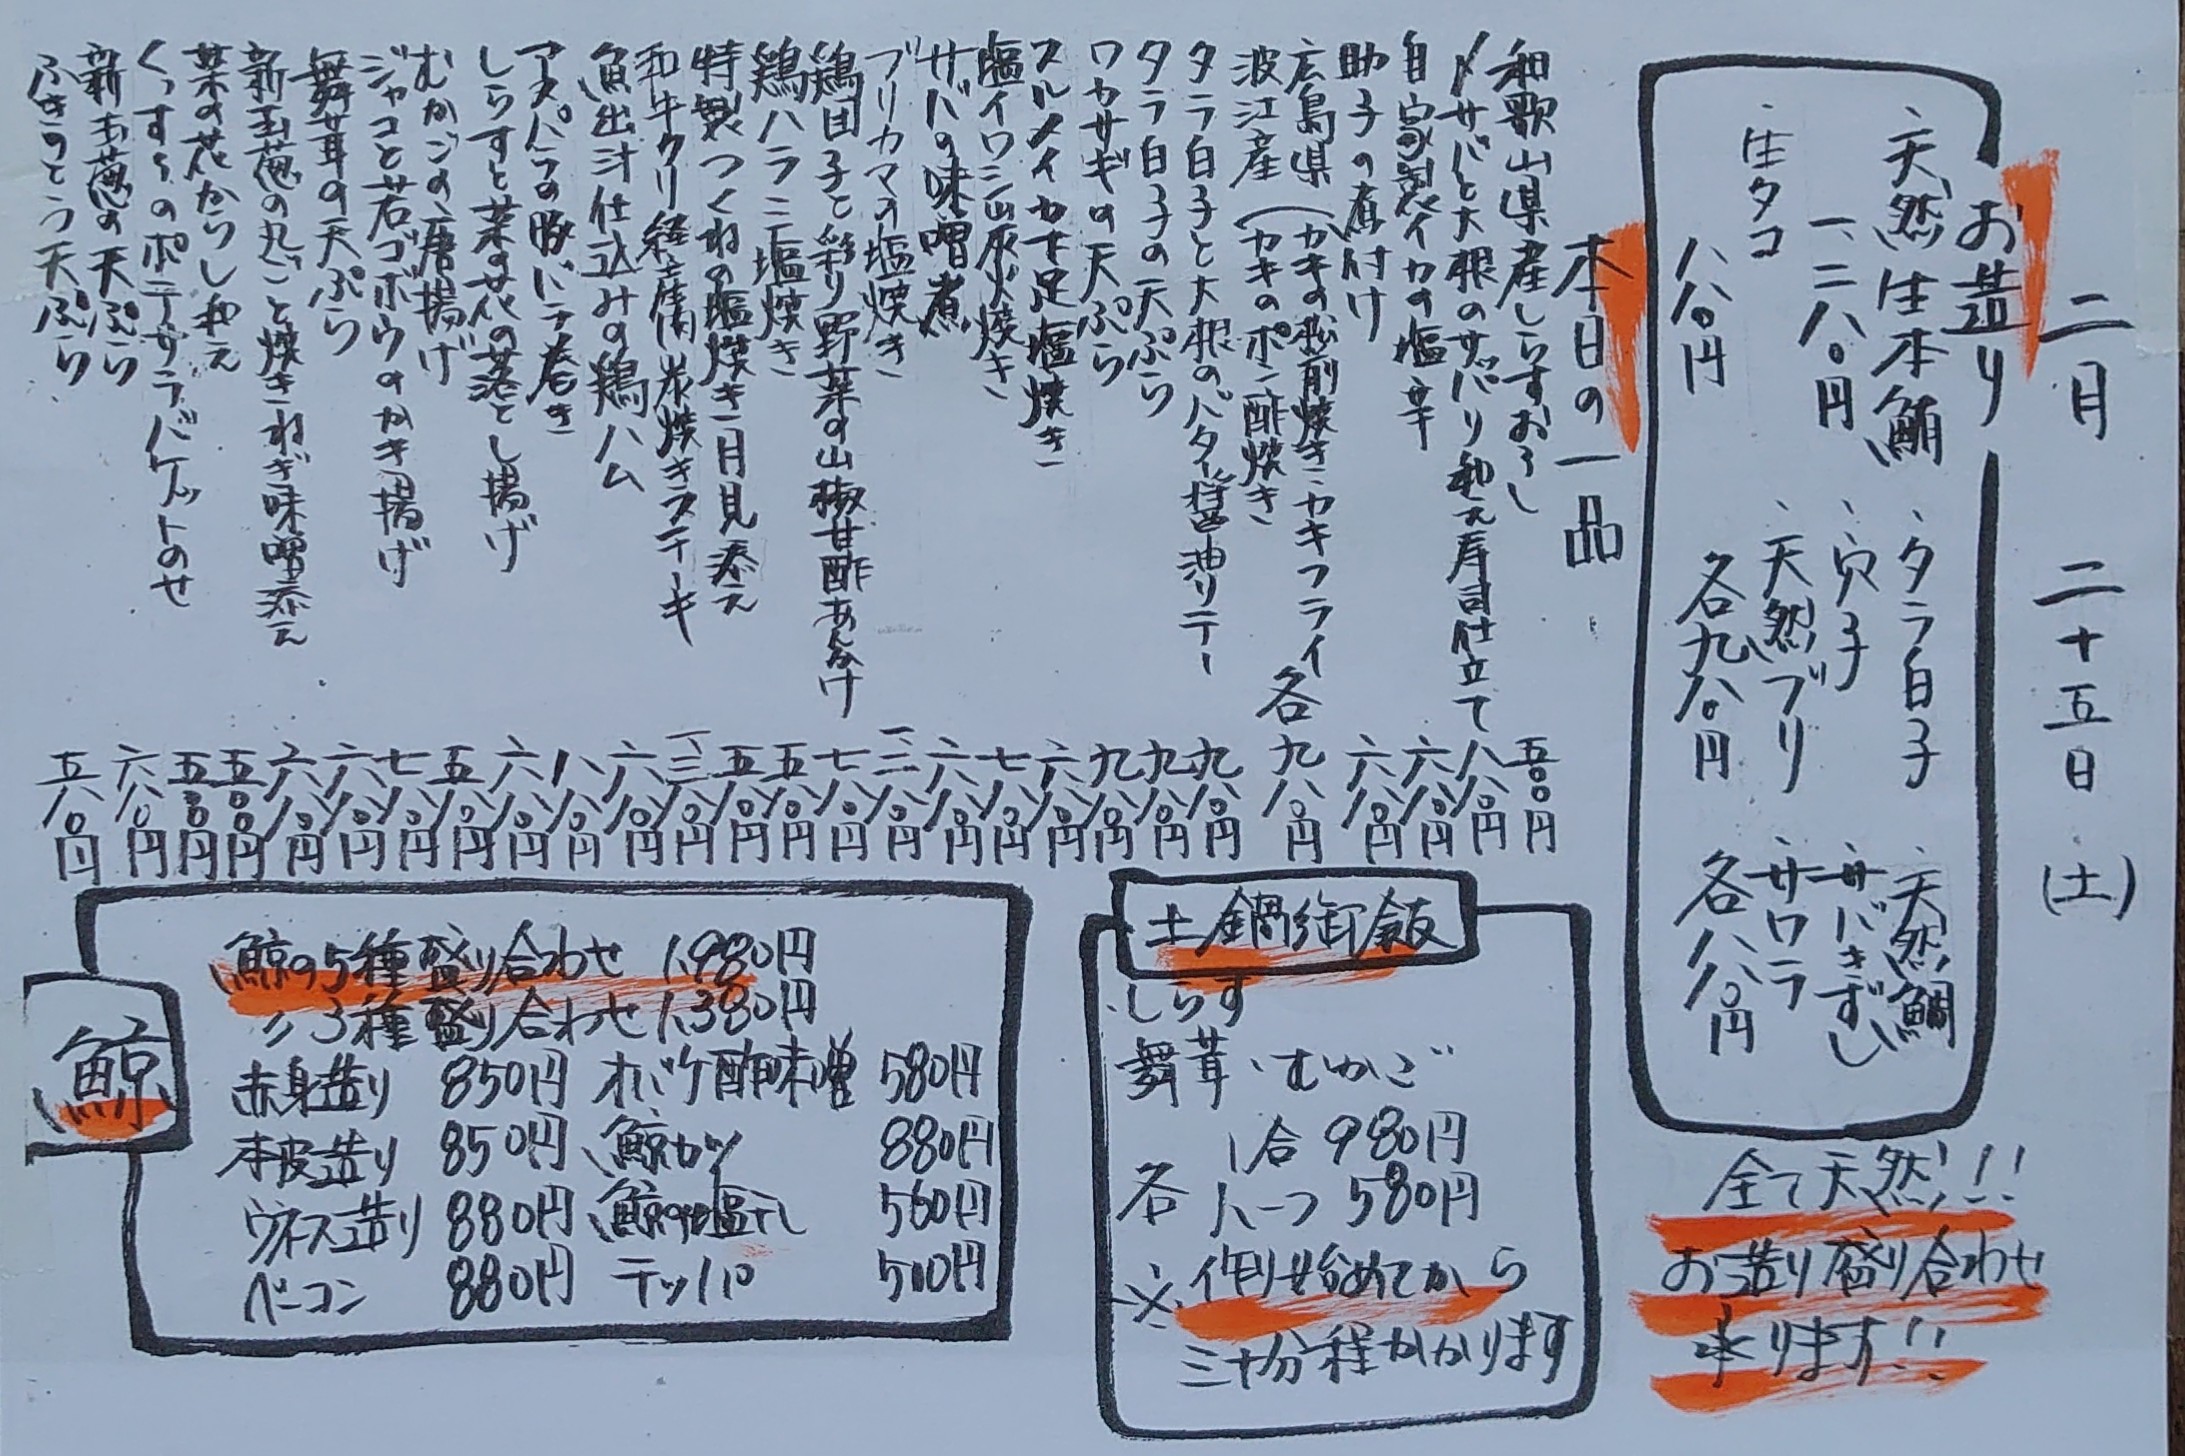 二月 二十五日(土)
お造り
、天然生本鮪
一、二八〇円
、生タコ
八八〇円
、タラ白子
、穴子
、天然ブリ
各九八〇円
、天然鯛
、サバきずし
、サワラ
各八八〇円
全て天然!!
お造り盛り合わせ
承ります!!
本日の一品
和歌山県産しらすおろし 五〇〇円
〆サバと大根のサッパリ和え寿司仕立て 八八〇円
自家製イカの塩辛 六八〇円
助子の煮付け 六八〇円
広島県(カキの松前焼き・カキフライ
波江産(カキのポン酢焼き 各九八〇円
タラ白子と大根のバター醤油ソテー 九八〇円
タラ白子の天ぷら 九八〇円
ワカサギの天ぷら 九八〇円
スルメイカ下足塩焼き 六八〇円
塩イワシ炭火焼き 七八〇円
サバの味噌煮 六八〇円
ブリカマの塩焼き 一、二八〇円
鶏団子と彩り野菜の山椒甘酢あんかけ 七八〇円
鶏ハラミ塩焼き 五八〇円
特製つくねの塩焼き 月見添え 五八〇円
和牛クリ経産肉炭焼きステーキ 一、三八〇円
魚出汁仕込みの鶏ハム 六八〇円
アスパラの豚バラ巻き 八八〇円
しらすと菜の花の落とし揚げ 六八〇円
むかごの唐揚げ 五八〇円
ジャコと若ゴボウのかき揚げ 七八〇円
舞茸の天ぷら 六八〇円
新玉葱の丸ごと焼き ねぎ味噌添え 六八〇円
菜の花からし和え 五〇〇円
くずしのポテサラバケットのせ 五五〇円
新玉葱の天ぷら 六八〇円
ふきのとう天ぷら 五八〇円
土鍋御飯
・しらす
舞茸・むかご
各 1合 980円
ハーフ 580円
※作り始めてから
三十分程かかります
鯨
鯨の5種盛り合わせ 1,980円
〃 3種盛り合わせ 1,380円
赤身造り 850円 オバケ酢味噌 580円
本皮造り 850円 鯨カツ 880円
ウネス造り 880円 鯨の塩干し 560円
ベーコン 880円 テッパ 500円